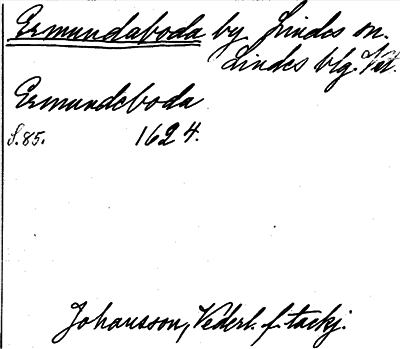 Ermundaboda by Lindes sn.
Lindes blg. Vstm.
Ermundeboda
S. 85. 1624.
Johansson, Vederl. f. tackj.